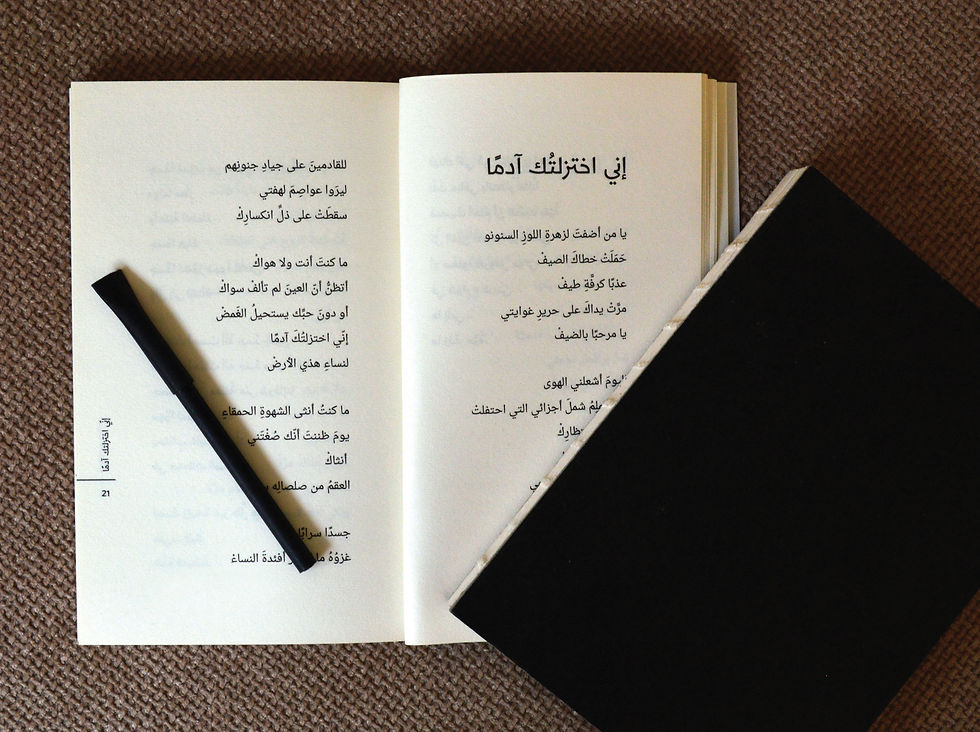 إني اختزلتُك آدمًا
يا من أضفتَ لزهرةِ اللوزِ السنونو
حَمَلَتْ خطاكَ الصيفْ
عذبًا كرفَّةِ طيفْ
مرَّتْ يداكَ على حريرِ غوايتي
يا مرحبًا بالضيفْ
اليومَ أشعلني الهوى
شملَ أجزائي التي احتفلتْ
للقادمينَ على جيادِ جنونِهم
ليرَوا عواصِمَ لهفتي
سقطَتْ على ذلِّ انكسارِكْ
ما كنتَ أنت ولا هواكْ
أتظنُّ أنّ العينَ لم تألفْ سواكْ
أو دونَ حبِّك يستحيلُ الغَمضْ
إنّي اختزلتُكَ آدمًا
لنساءِ هذي الأرضْ
ما كنتُ أنثى الشهوةِ الحمقاءِ
يومَ ظننتَ أنّك صُغْتَني
أنثاكْ
العقمُ من صلصالِه
جسدًا سرابًا
غزوُهُ أفئدةَ النساءْ
إنّي اختزلتك آدمًا
21